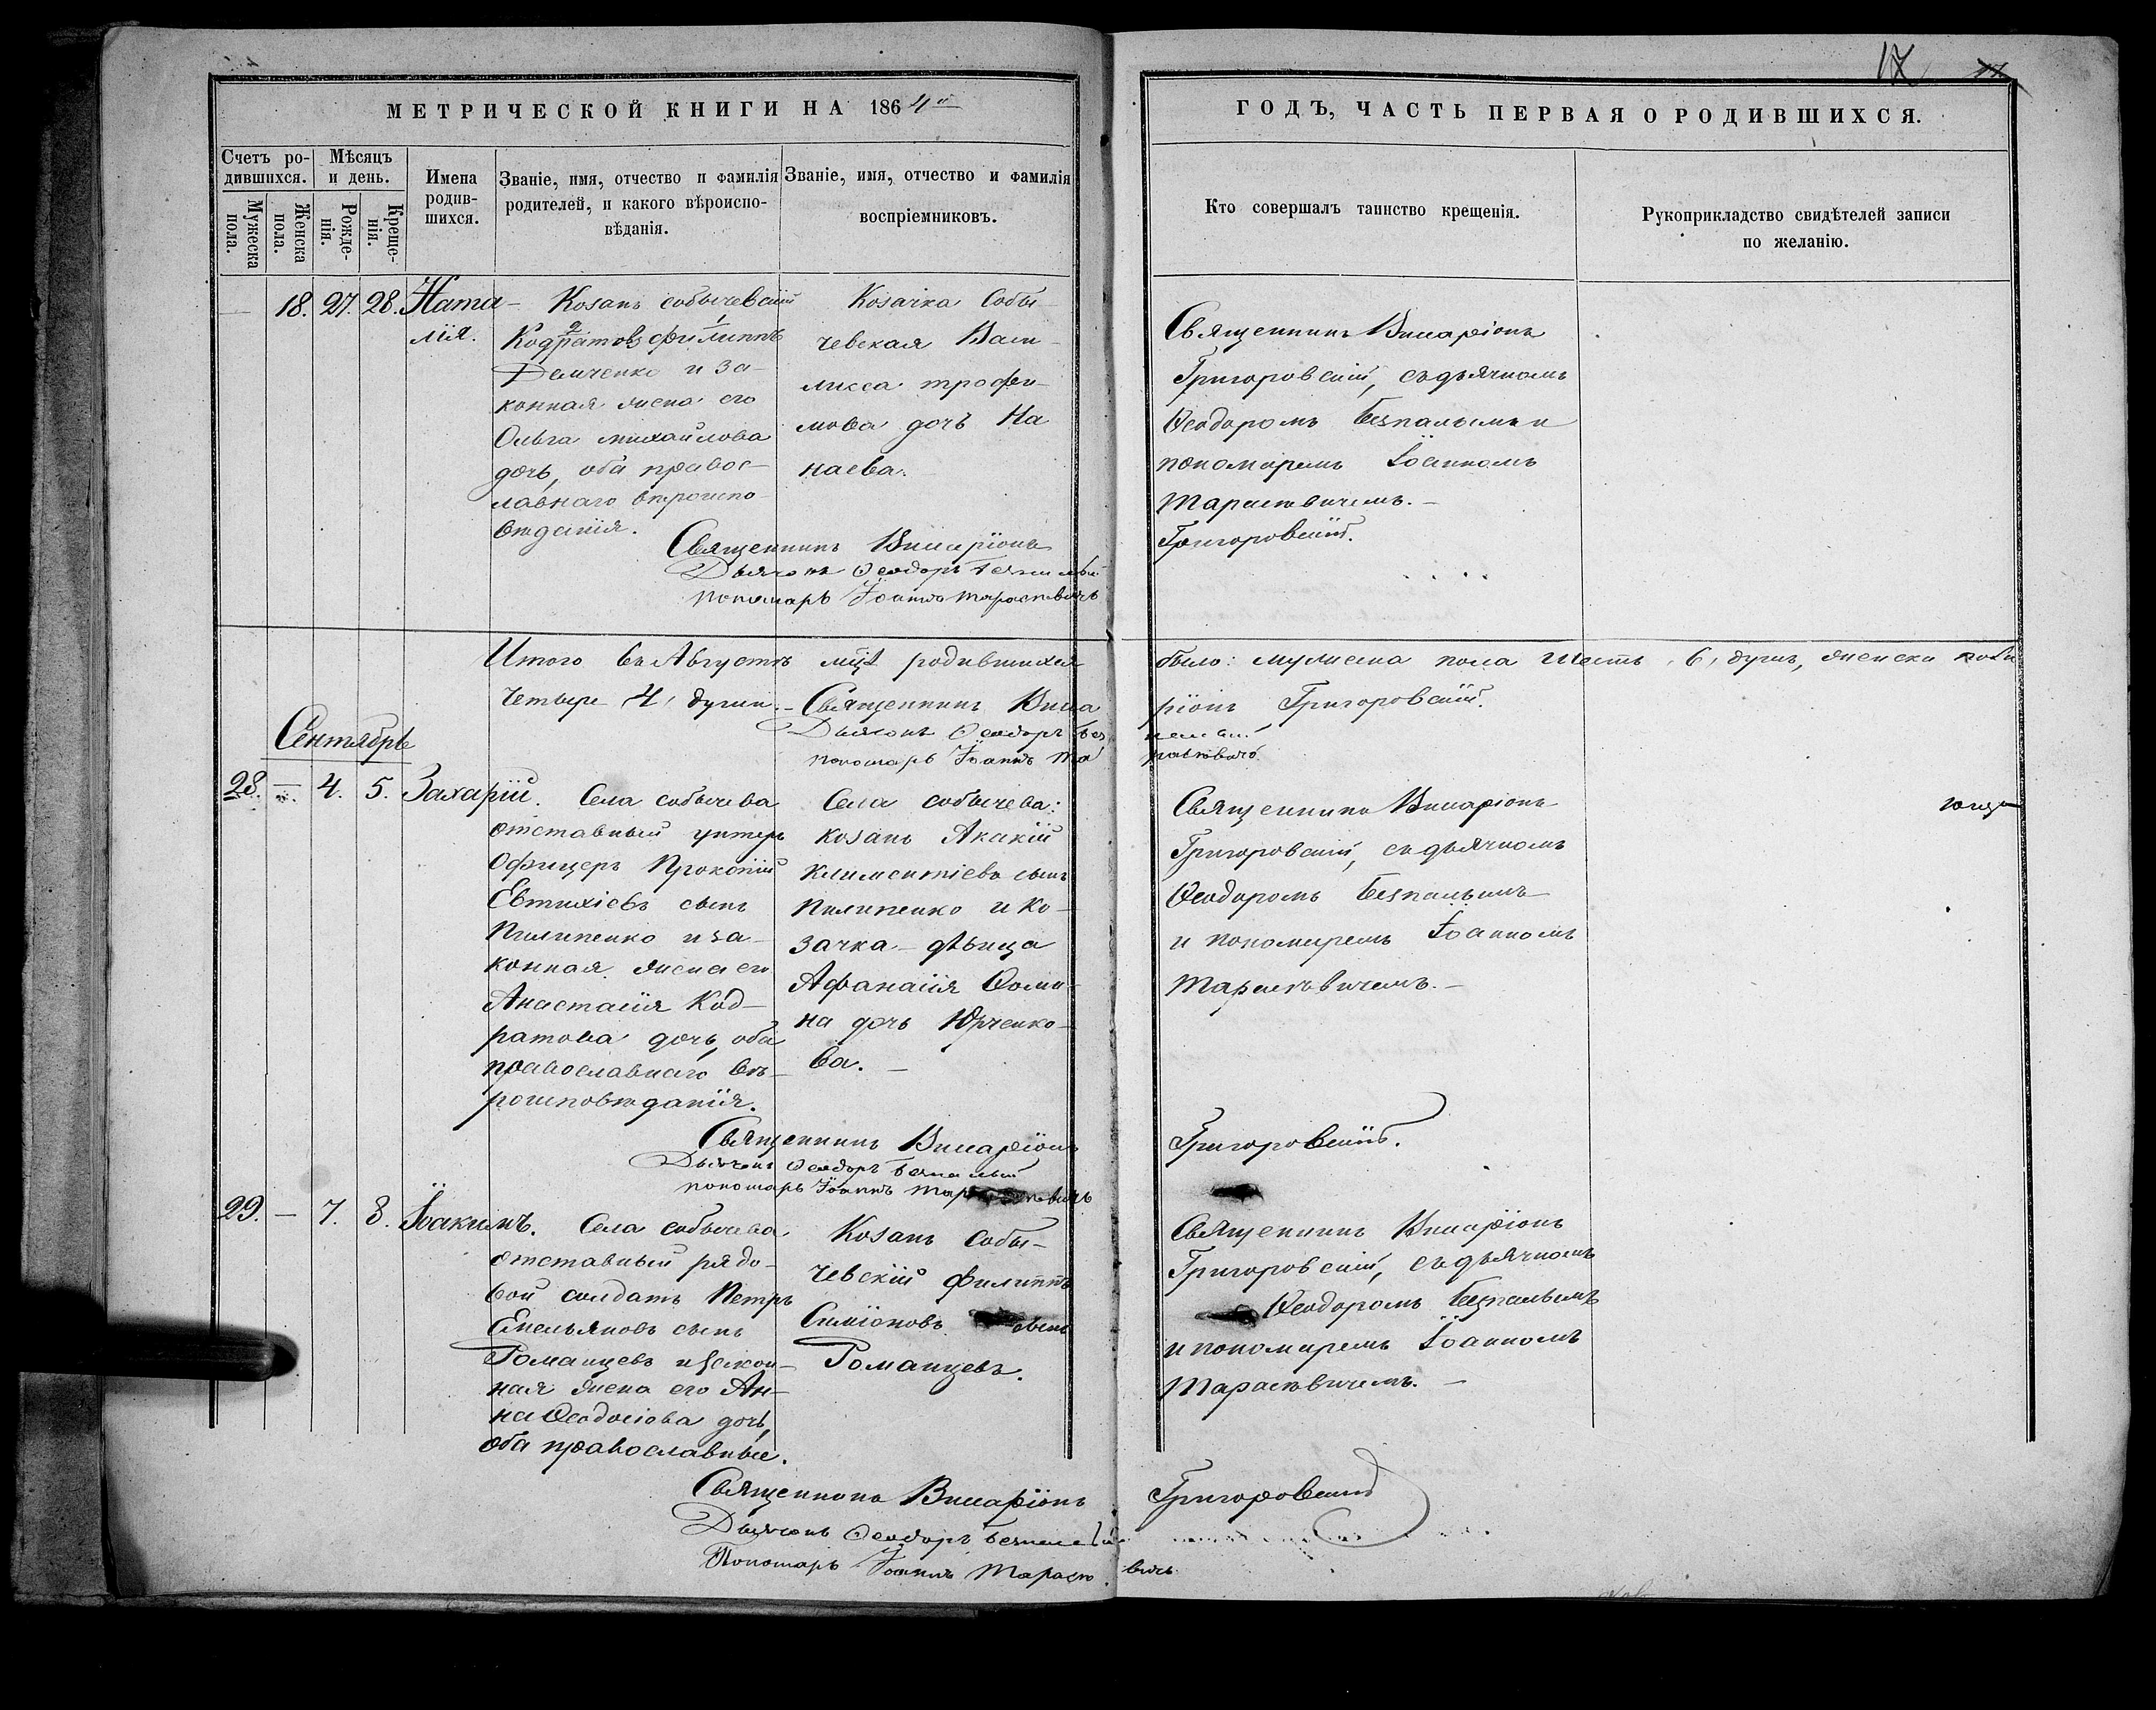 17
МЕТРИЧЕСКОЙ КНИГИ НА 1864й
ГОДЪ, ЧАСТЬ ПЕРВАЯ О РОДИВШИХСЯ.
Счетъ ро-
дившихся.
Мужеска
пола.
Женска
пола.
Мѣсяцъ
и день.
Рожде-
нія.
Креще-
нія.
Имена
родив-
шихся.
Званіе, имя, отчество и фамилія
родителей, и какого вѣроиспо-
вѣданія.
Званіе, имя, отчество и фамилія
воспріемниковъ.
Кто совершалъ таинство крещенія.
Рукоприкладство свидѣтелей записи
по желанію.
— 18. 27. 28. Ната-
лія.
Козакъ собычевскій
Кодратовъ филиппъ
Демченко и за-
конная жена его
Ольга михайлова
дочь, оба правос-
лавнаго вѣроиспо-
вѣданія.
Козачка Собы-
чевская Васи-
лисса трофи-
мова дочь На
наева.
Священникъ Висаріонъ
Григоровскій, съ дьячкомъ
Ѳеодоромъ Безпалымъ и
пономаремъ Іоанномъ
Тарасевичемъ.—
Священникъ Висаріонъ
Григоровскій.
Дьячокъ Ѳеодоръ Безпалый
пономарь Іоаннъ Тарасевичъ
Итого въ Августѣ мцѣ родившихся
было: мужеска пола шесть, 6, душъ, женска пола
четыре 4, души.— Священникъ Виса
ріонъ Григоровскій.
Дьячокъ Ѳеодоръ Без
палый
пономарь Іоаннъ Та
расевичъ
Сентябрь
28. — 4. 5. Захарій.
Села собычева
отставный унтеръ
Офицеръ Прокопій
Евтихіевъ сынъ
Пилипенко и за-
конная жена его
Анастасія Код-
ратова дочь, оба
православнаго вѣ-
роисповѣданія.
Села собычева:
козакъ Акакій
Климентіевъ сынъ
Пилипенко и ко-
зачка дѣвица
Афанасія Ѳоми-
на дочь Юрченко-
ва.—
Священникъ Висаріонъ
Григоровскій, съ дьячкомъ
Ѳеодоромъ Безпалымъ
и пономаремъ Іоанномъ
Тарасевичемъ.—
Священникъ Висаріонъ
Григоровскій.
Дьячокъ Ѳеодоръ Безпалый
пономарь Іоаннъ Тарасевичъ
29. — 7. 8. Іоакимъ.
Села собычева
отставный рядо-
вой солдатъ Петръ
Емельяновъ сынъ
Романцевъ и закон-
ная жена его Ан-
на Ѳеодосіова дочь,
оба православные.
Козакъ Собы-
чевскій филиппъ
Симіоновъ сынъ
Романцевъ.
Священникъ Висаріонъ
Григоровскій, съ дьячкомъ
Ѳеодоромъ Безпалымъ
и пономаремъ Іоанномъ
Тарасевичемъ.—
Священникъ Висаріонъ
Григоровскій
Дьячокъ Ѳеодоръ Безпалый
Пономарь Іоаннъ Тарасе
вичъ